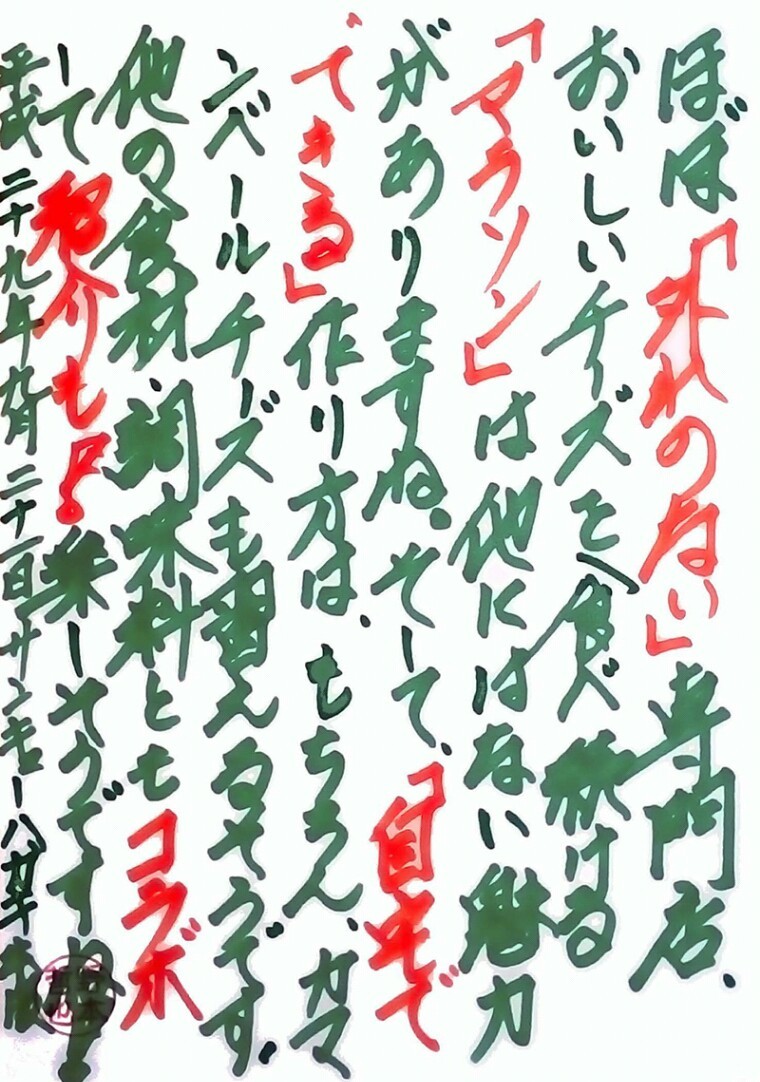 ほぼ「外れのない」専門店、
おいしいチーズを食べ続ける
「マラソン」は他にはない魅力
がありますね。そして、「自宅で
できる」作り方は、もちろん、カマ
ンベールチーズも習えるそうです。
他の食材、調味料とも コラボ
して 紹介も!? 楽しそうですね!
平成二十九年 九月 二十一日 サンキュー八